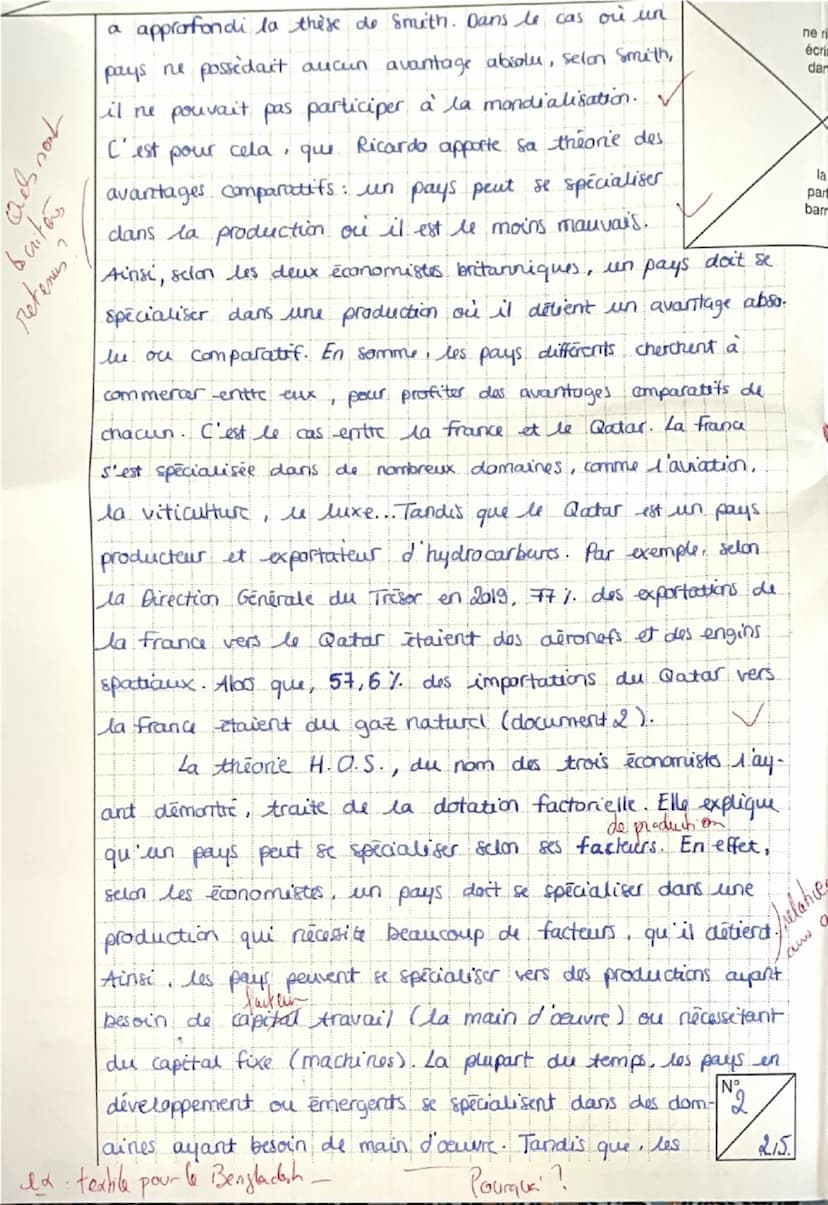 a approfondi la thèse de Smith. Dans le cas où un
pays ne possédait aucun avantage absolu, selon Smith,
il ne pouvait pas participer à la mondialisation.
C'est pour cela, que Ricardo apporte sa théorie des
avantages comparatifs : un pays peut se spécialiser
dans la production où il est le moins mauvais.
Ainsi, selon les deux économistes britanniques, un pays doit se
spécialiser dans une production où il détient un avantage abso-
lu ou comparatif. En somme, les pays différents cherchent à
commercer entre eux, pour profiter des avantages comparatifs de
chacun. C'est le cas entre la France et le Qatar. La France
s'est spécialisée dans de nombreux domaines, comme l'aviation,
la viticulture, le luxe... Tandis que le Qatar est un pays
producteur et exportateur d'hydrocarbures. Par exemple, selon
la Direction Générale du Trésor en 2019, 77 % des exportations de
la France vers le Qatar étaient des aéronefs et des engins
spatiaux. Alors que, 57,6 % des importations du Qatar vers
la France étaient du gaz naturel (document 2).
La théorie H.O.S., du nom des trois économistes l'ay-
ant démontré, traite de la dotation factorielle. Elle explique
de production
qu'un pays peut se spécialiser selon ses facteurs. En effet,
selon les économistes, un pays doit se spécialiser dans une
production qui nécesite beaucoup de facteurs, qu'il détient.
Ainsi, les pays peuvent se spécialiser vers des productions ayant
facteur
besoin de capital travail (la main d'œuvre) ou nécessitant
du capital fixe (machines). La plupart du temps, les pays en
développement ou émergents se spécialisent dans des dom-
aines ayant besoin de main d'œuvre. Tandis que, les
ex : textile pour le Bengladesh
Pourquoi ?
Quels sont
critères
retenus ?
ne ri
écri
dan
la
part
barr
N°
2
2,5.